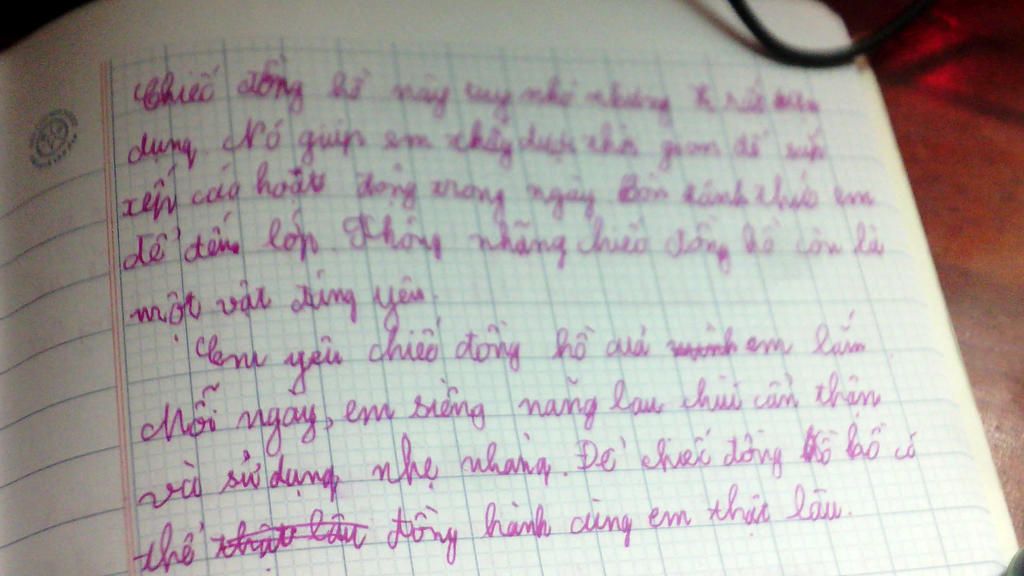 Chiếc đồng hồ này tuy nhỏ nhưng rất tiện
dụng. Nó giúp em thấy được thời gian để sắp
xếp các hoạt động trong ngày. Còn đánh thức em
để đến lớp. Không những chiếc đồng hồ còn là
một vật đáng yêu.
Em yêu chiếc đồng hồ của em lắm.
Mỗi ngày, em siêng năng lau chùi cẩn thận
và sử dụng nhẹ nhàng. Để chiếc đồng hồ có
thể đồng hành cùng em thật lâu.